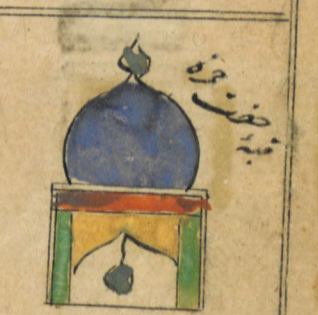 قبهٔ حضرت حمزه